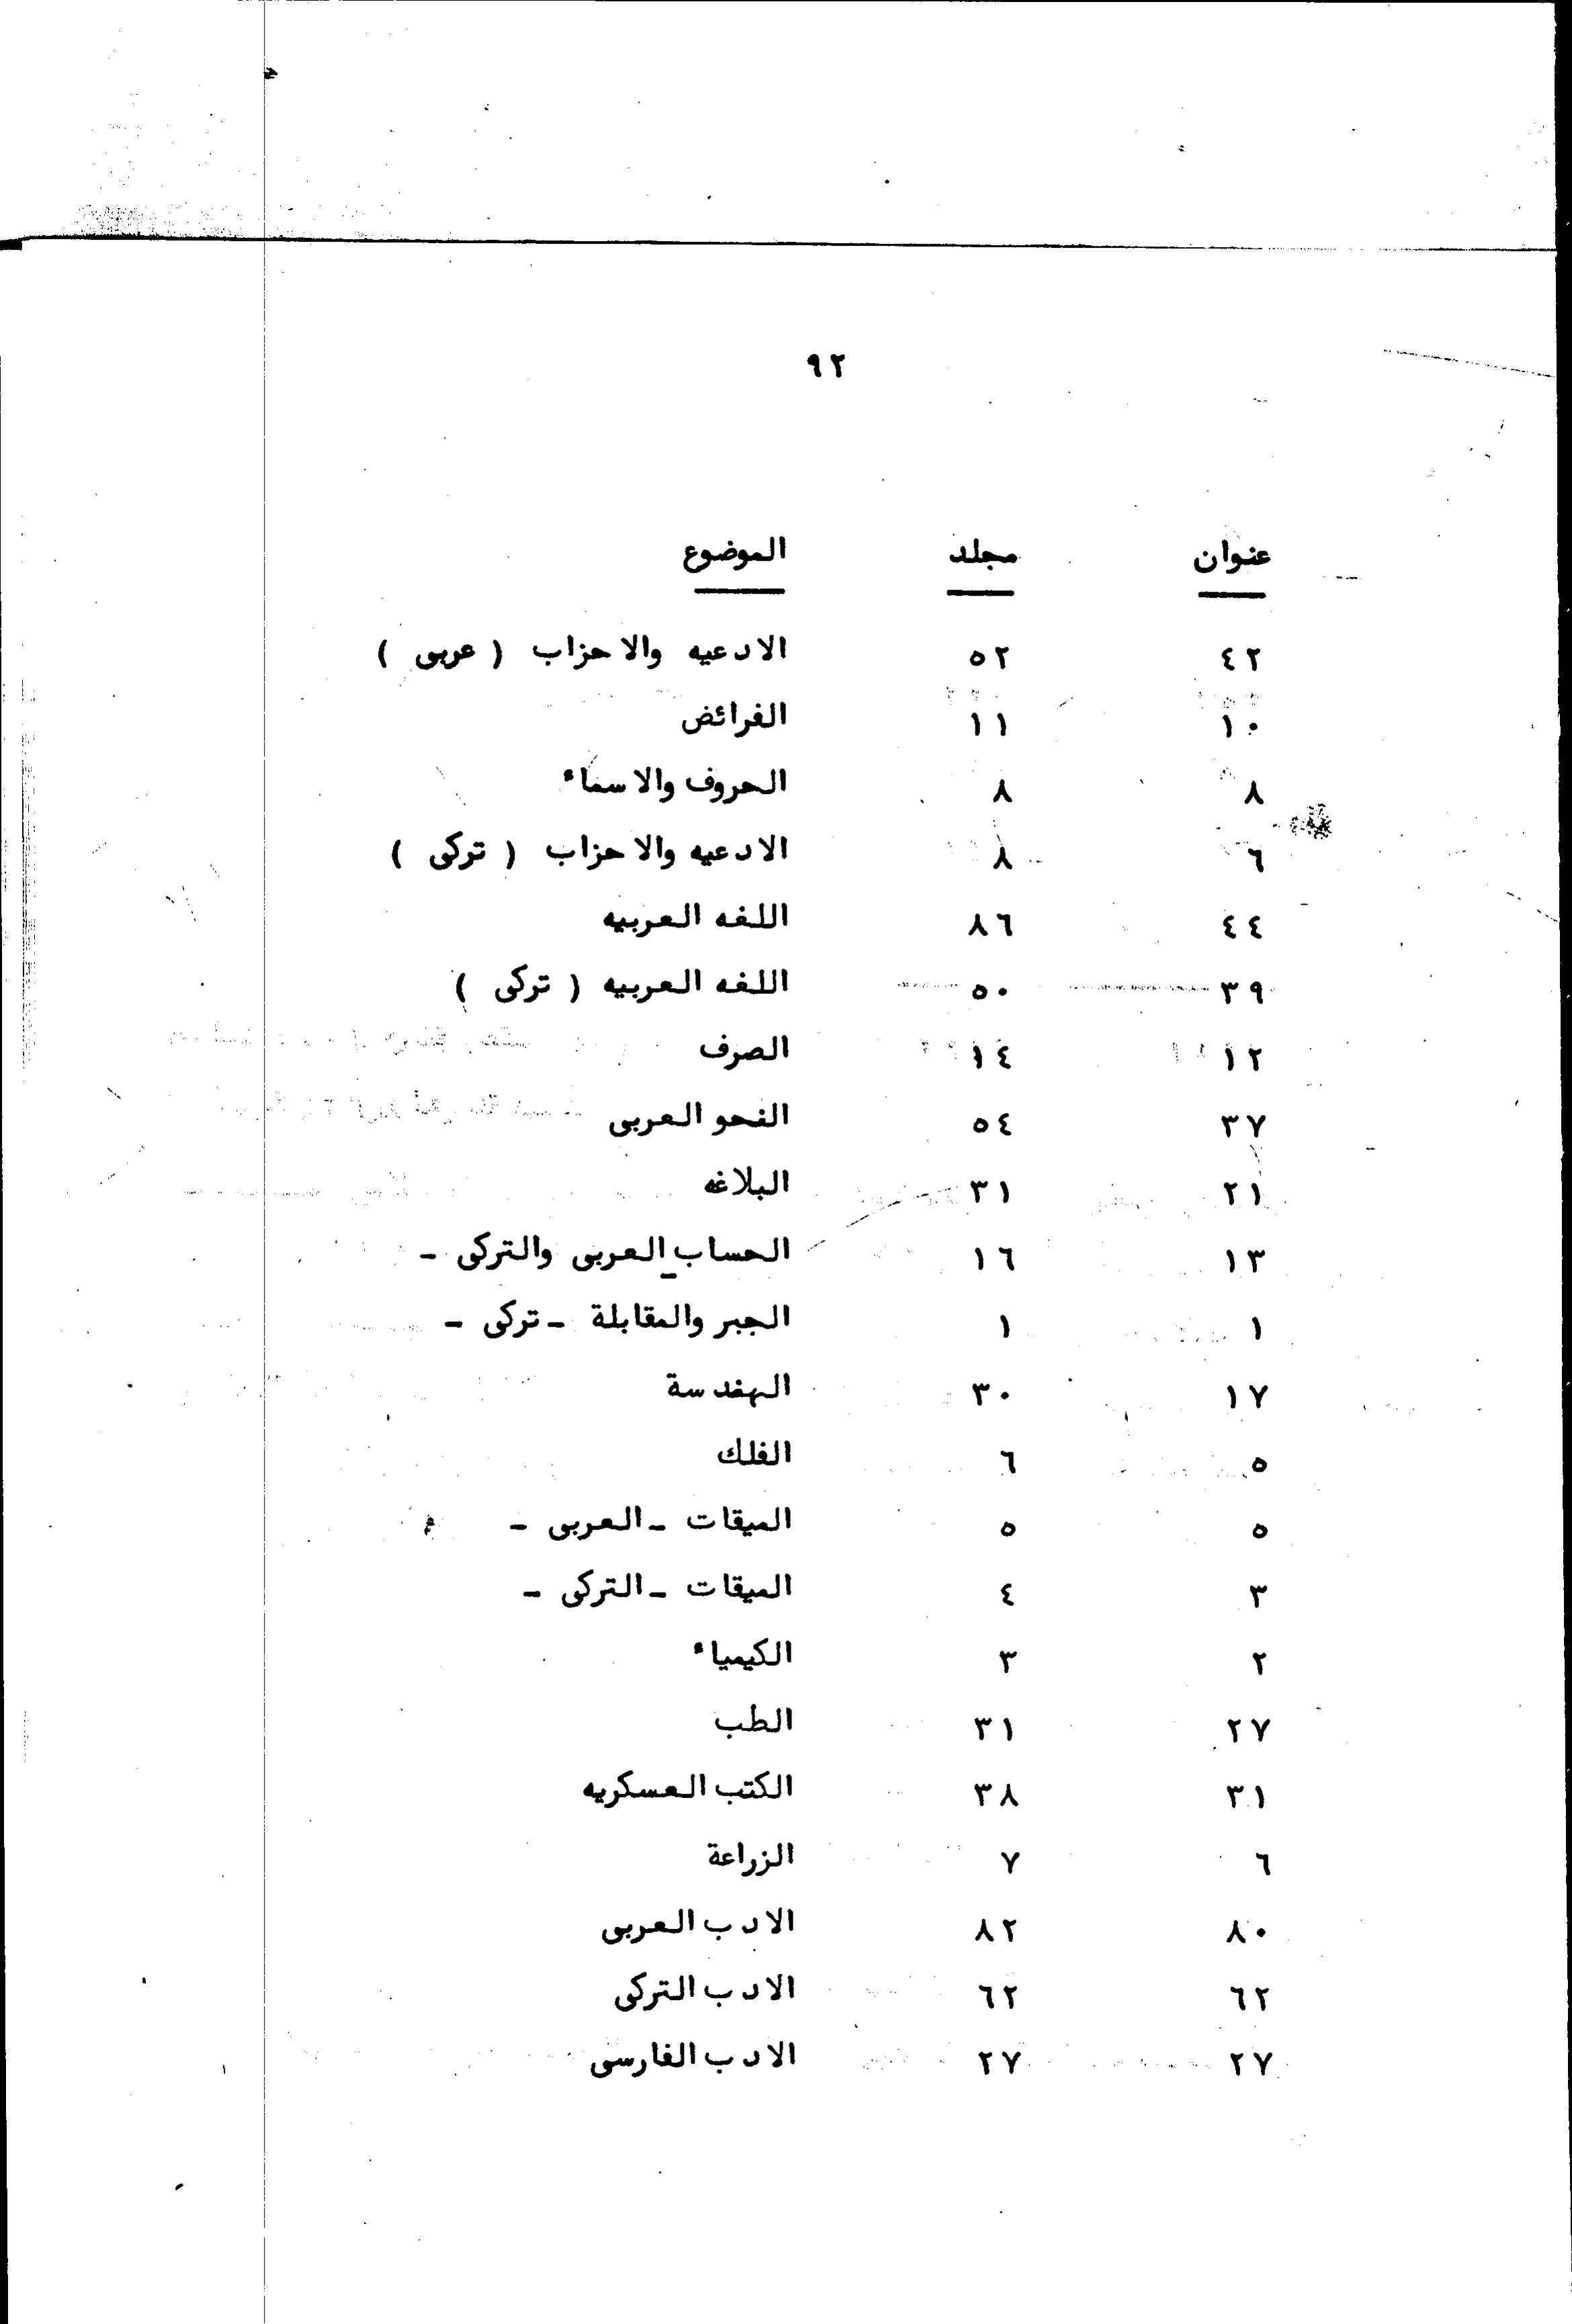 ٩٢
عنوان مجلد الموضوع
٤٢ ٥٢ الادعيه والاحزاب ( عربى )
١٠ ١١ الفرائض
٨ ٨ الحروف والاسماء
٦ ٨ الادعيه والاحزاب ( تركى )
٤٤ ٨٦ اللغه العربيه
٣٩ ٥٠ اللغه العربيه ( تركى )
١٢ ١٤ الصرف
٣٧ ٥٤ النحو العربى
٢١ ٣١ البلاغه
١٣ ١٦ الحساب _ العربى والتركى -
١ ١ الجبر والمقابلة - تركى -
١٧ ٣٠ الهندسة
٥ ٦ الفلك
٥ ٥ الميقات - العربى -
٣ ٤ الميقات - التركى -
٢ ٣ الكيمياء
٢٧ ٣١ الطب
٣١ ٣٨ الكتب العسكريه
٦ ٧ الزراعة
٨٠ ٨٢ الادب العربى
٦٢ ٦٢ الادب التركى
٢٧ ٢٧ الادب الفارسى